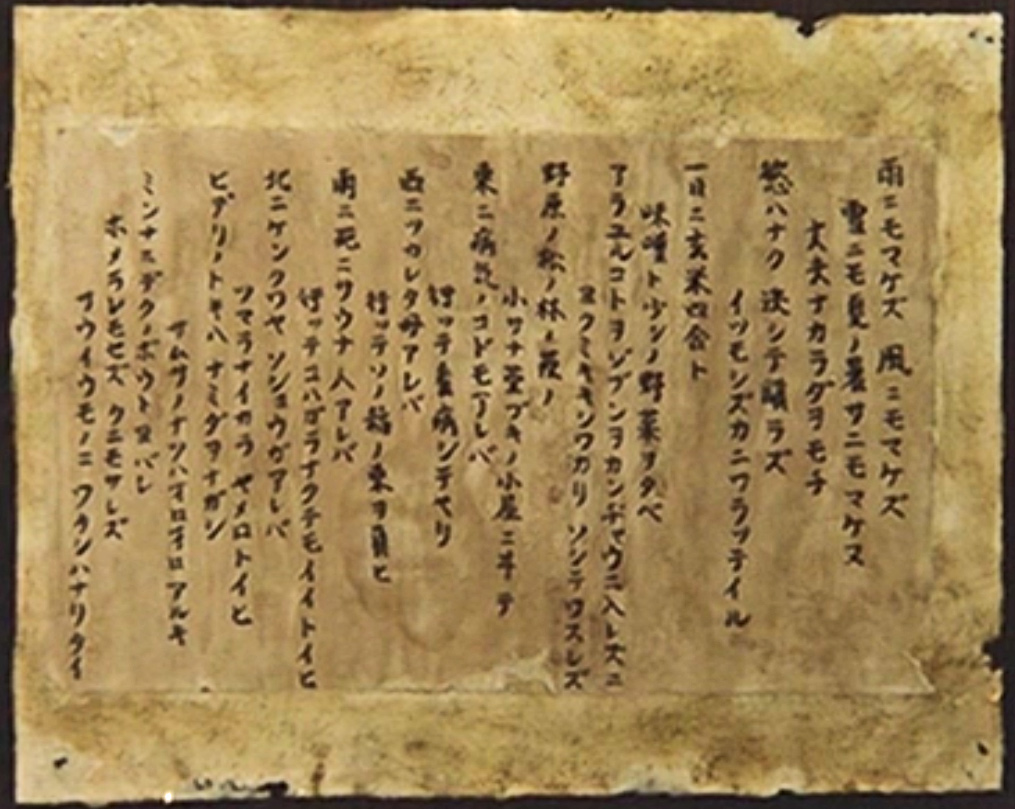 雨ニモマケズ 風ニモマケズ
雪ニモ夏ノ暑サニモマケヌ
丈夫ナカラダヲモチ
慾ハナク 決シテ瞋ラズ
イツモシズカニワラッテイル
一日ニ玄米四合ト
味噌ト少シノ野菜ヲタベ
アラユルコトヲジブンヲカンヂャウニ入レズニ
ヨクミキキシワカリ ソシテワスレズ
野原ノ松ノ林ノ蔭ノ
小サナ萱ブキノ小屋ニヰテ
東ニ病気ノコドモアレバ
行ッテ看病シテヤリ
西ニツカレタ母アレバ
行ッテソノ稲ノ束ヲ負ヒ
南ニ死ニサウナ人アレバ
行ッテコハガラナクテモイイトイヒ
北ニケンクヮヤ ソショウガアレバ
ツマラナイカラ ヤメロトイヒ
ヒデリノトキハ ナミダヲナガシ
サムサノナツハオロオロアルキ
ミンナニデクノボウトヨバレ
ホメラレモセズ クニモサレズ
サウイウモノニ ワタシハナリタイ